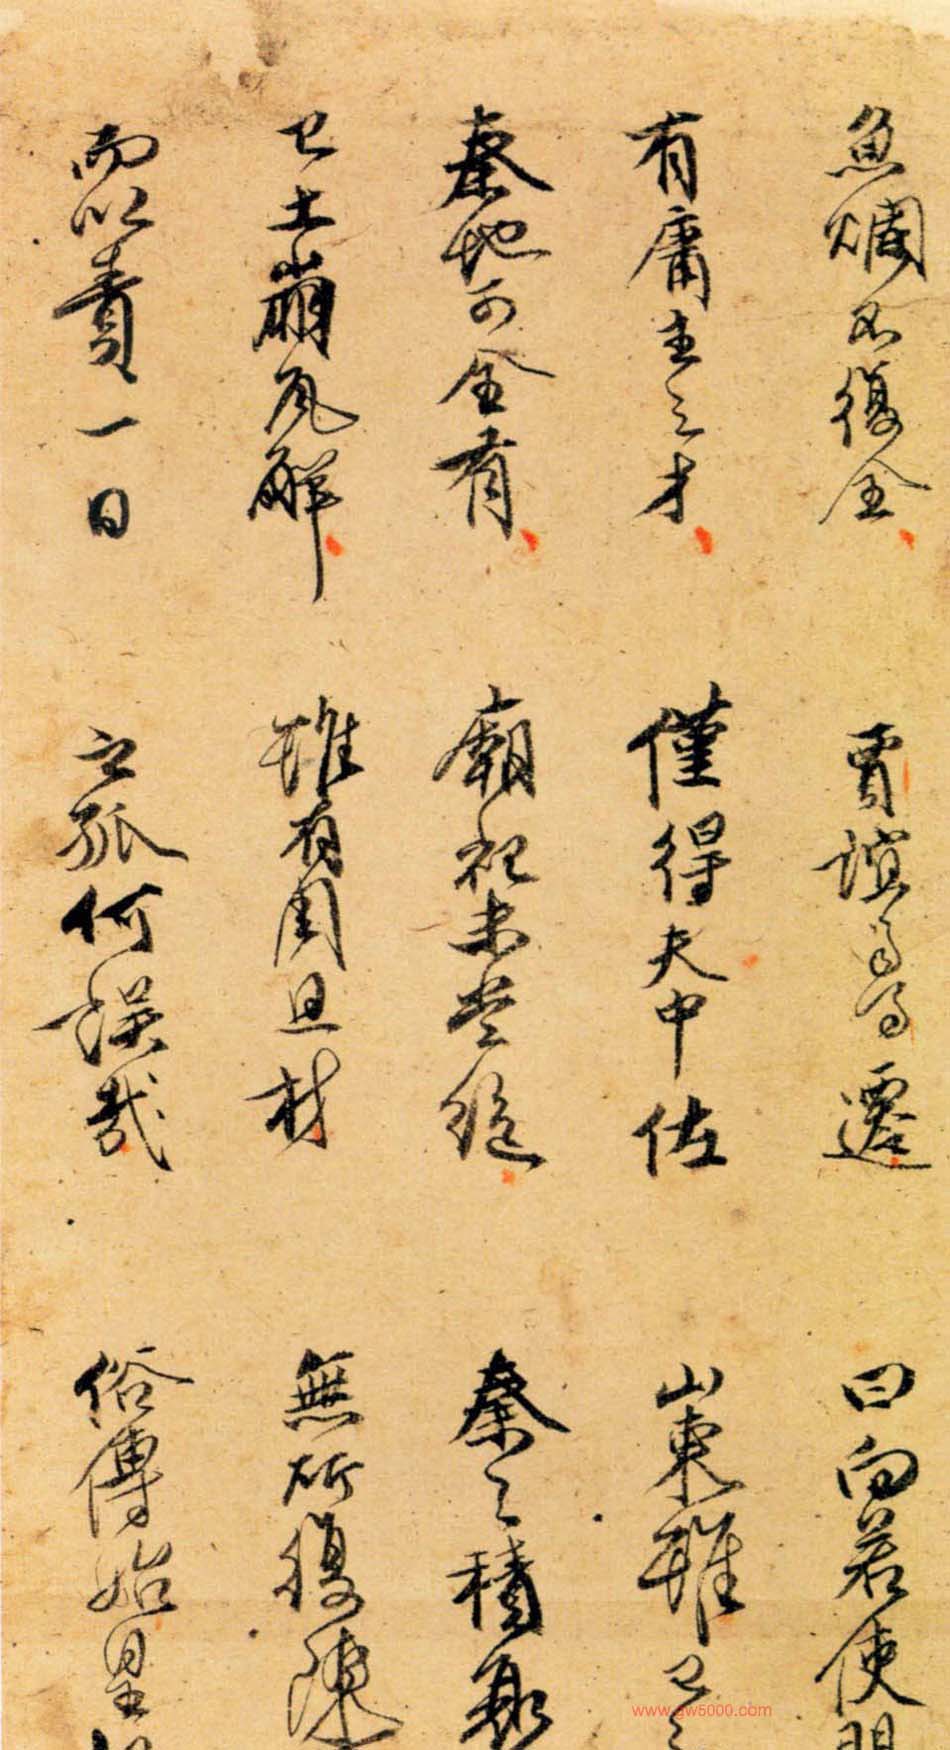 魚爛不復全 賈誼司馬遷 曰向若使
有庸主之才 僅得夫中佐 山東雖已
秦地可全有 廟祀未當絕 秦之積衰
已土崩瓦解 雖有周旦材 無所復陳
而以責一日 之孤何誤哉 俗傳始皇
www.gw5000.com